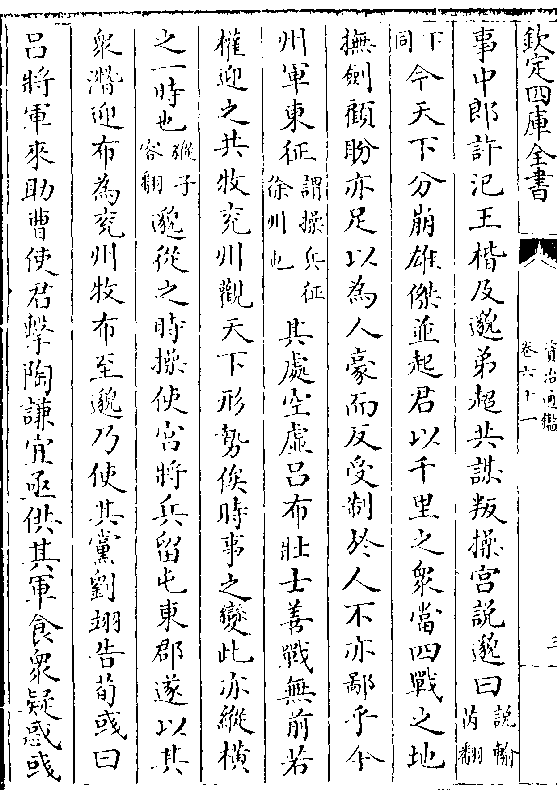 欽定四庫全書
資治通鑑
卷六十一
三
事中郎許汜王楷及邈弟超共謀叛操宮說邈曰說輸芮翻
下同今天下分崩雄傑並起君以千里之衆當四戰之地
撫劍顧盼亦足以為人豪而反受制於人不亦鄙乎今
州軍東征謂操兵征徐州也其處空虛呂布壯士善戰無前若
權迎之共牧兖州觀天下形勢俟時事之變此亦縱橫
之一時也縱子容翻邈從之時操使宮將兵留屯東郡遂以其
衆潛迎布為兖州牧布至邈乃使其黨劉翊告荀彧曰
呂將軍來助曹使君擊陶謙宜亟供其軍食衆疑惑彧